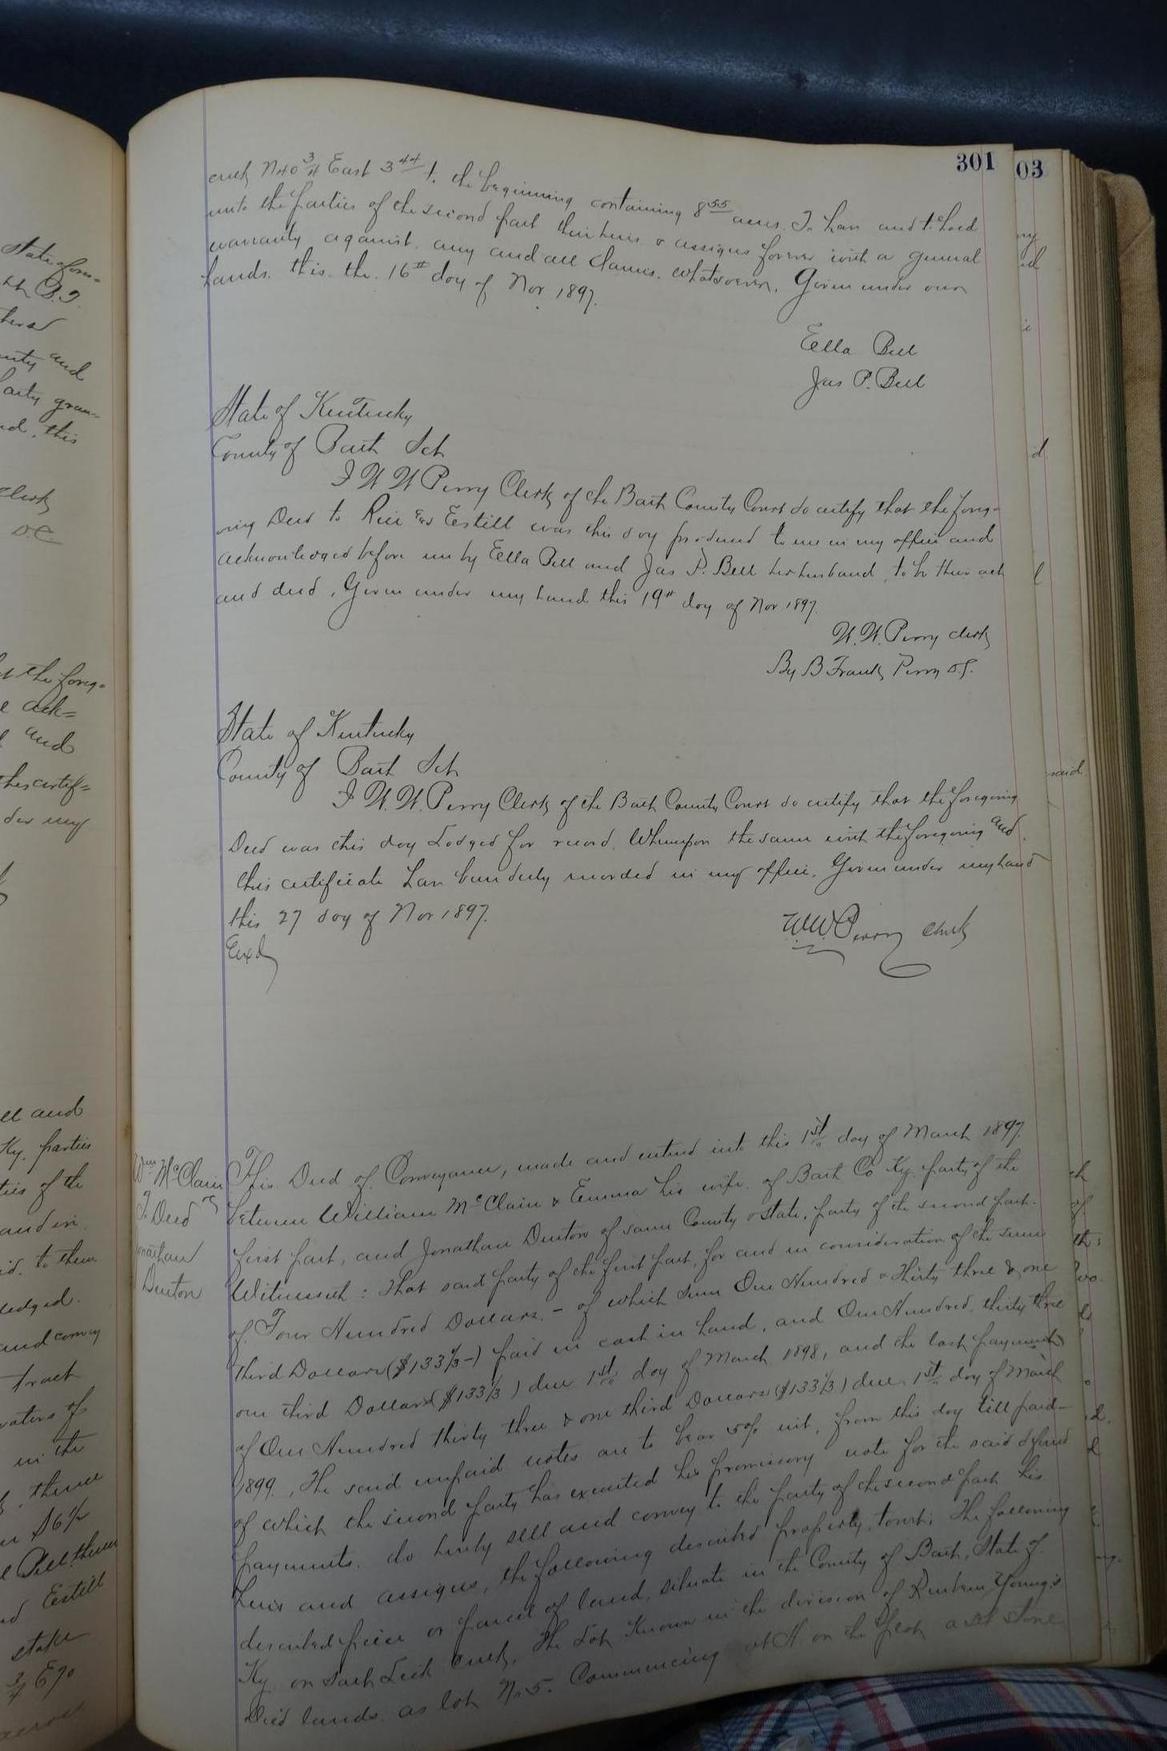 301
03
creek N40 3/4 East 3 44 to the beginning containing 8 55 acres. To have and to hold
unto the parties of the second part their heirs & assigns forever with a general
warranty against any and all claims whatsoever. Given under our
hands this the 16th day of Nov 1897.
Ella Bell
Jas P. Bell
State of Kentucky
County of Bath Sct
I W. W. Perry Clerk of the Bath County Court do certify that the foreg-
oing Deed to Rice and Estill was this day produced to me in my office and
acknowledged before me by Ella Bell and Jas P. Bell her husband, to be their act
and deed, Given under my hand this 19th day of Nov 1897.
W. W. Perry Clerk
By B Frank Perry D.C.
State of Kentucky
County of Bath Sct
I W. W. Perry Clerk of the Bath County Court do certify that the foregoing
Deed was this day Lodged for record. Whereupon the same with the foregoing and
this certificate have been duly recorded in my office. Given under my hand
this 27 day of Nov 1897.
WW Perry Clerk
Exd
Wm McClain
To Deed
Jonathan
Denton
This Deed of Conveyance, made and entered into this 1st day of March 1897.
between William McClain & Emma his wife of Bath Co Ky. party of the
first part, and Jonathan Denton of same County & State, party of the second part.
Witnesseth: That said party of the first part, for and in consideration of the sum
of Four Hundred Dollars, - of which sum One Hundred & thirty three & one
third Dollars ($133 1/3 -) paid in cash in hand, and One Hundred, thirty three
one third Dollars ($133 1/3) due 1st day of March 1898, and the last payment
of One Hundred thirty three & one third Dollars ($133 1/3) due 1st day of March
1899. The said unpaid notes are to bear 5% int, from this day till paid -
of which the second party has executed his promissory note for the said deferred
payments. do hereby sell and convey to the party of the second part his
heirs and assigns, the following described property, towit: The following
described piece or parcel of land, situate in the County of Bath, State of
Ky. on Salt Lick Creek, The Lot Known in the division of Reuben Young's
Dec'd lands as lot No 5. Commencing at H on the plat a set stone